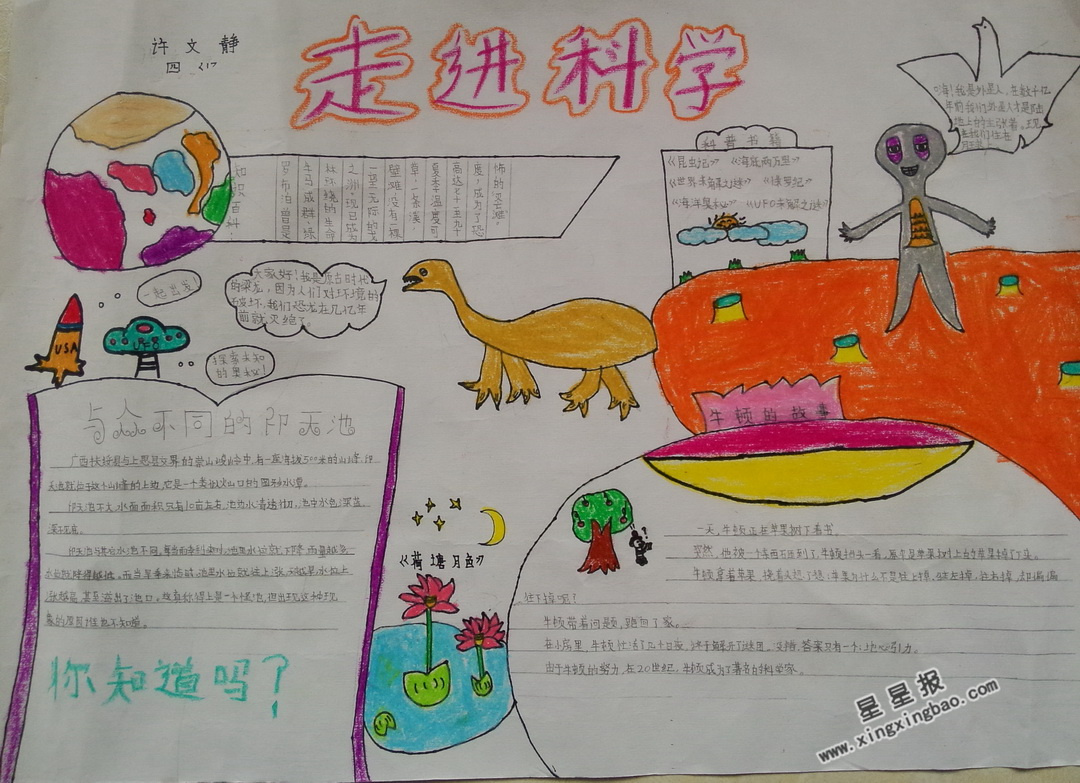 走进科学
许文静
四 <17
知识百科:
罗布泊曾是
牛马成群绿
林环绕的生命
之洲,现已成为
一望无际的戈
壁滩,没有一棵
草,一条溪,
夏季温度可
高达七十至九十
度,成为了恐
怖的死亡之
科普书籍
《昆虫记》 《海底两万里》
《世界未解之谜》 《侏罗纪》
《海洋奥秘》 《UFO未解之谜》
嗨!我是外星人,在数十亿
年前我们外星人才是陆
地上的主宰者,现
一起出发!
探索未知
的奥秘!
USA
UFO
大家好!我是原古时代
的梁龙,因为人们对环境的
破坏,我们恐龙在几亿年
前就灭绝了。
与众不同的印天池
广西扶绥县与上思县交界的崇山峻岭中,有一座海拔500米的山峰,印
天池就位于这个山峰的上边,它是一个类似火山口的圆形水潭。
印天池不大,水面面积只有10亩左右,池边水清透切,池中水色深蓝,
深不见底。
你知道吗?
《荷塘月色》
牛顿的故事
一天,牛顿正在苹果树下看书。
突然,他被一个东西砸到了,牛顿抬头一看,原来是苹果树上的苹果掉了下来。
牛顿拿着苹果,挠着头想了想:苹果为什么不是往上掉,往左掉,往右掉,却偏偏
往下掉呢?
牛顿带着问题,跑回了家。
在小房里,牛顿忙活了几十日夜,终于解开了谜团。没错,答案只有一个:地心引力。
由于牛顿的努力,在20世纪,牛顿成为了著名的科学家。
星星报
www.xingxingbao.com